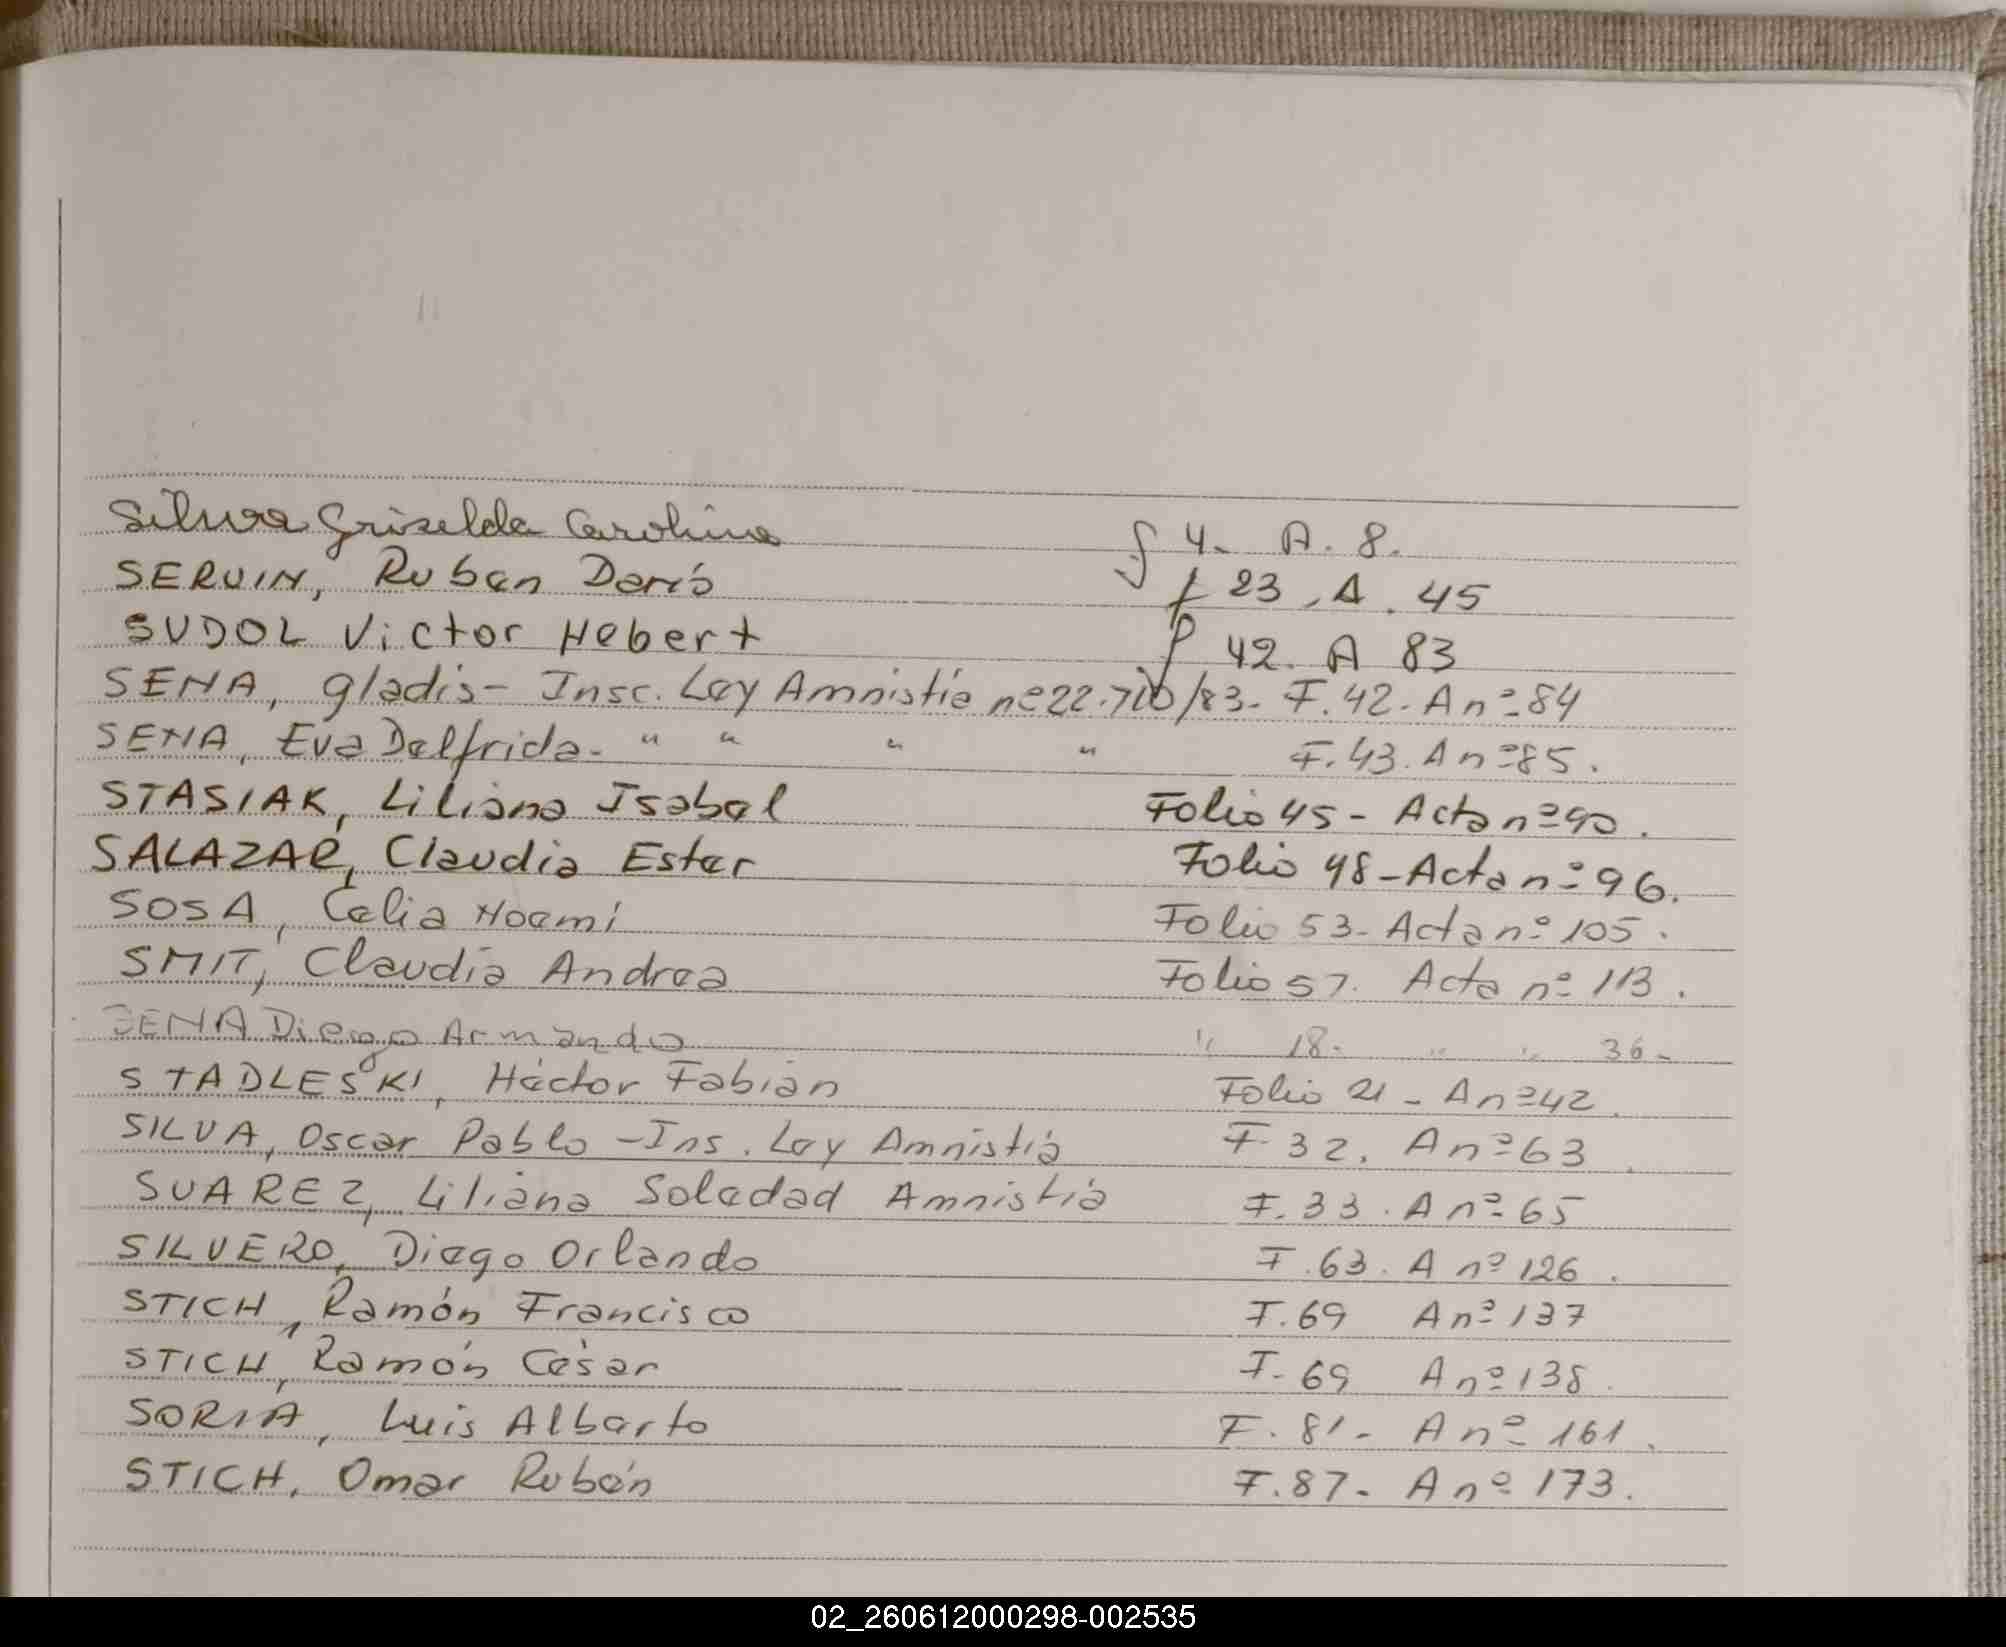 Silva Griselda Carolina f 4. A. 8.
SERVIN, Ruben Darío f 23, A. 45
SUDOL Victor Hebert f 42. A 83
SENA, gladis- Insc. Ley Amnistía nº 22.710/83- F.42. A nº 84
SENA, Eva Delfrida- " " " " F.43. A nº 85.
STASIAK, Liliana Isabel Folio 45 - Acta nº 90.
SALAZAR, Claudia Ester Folio 48 - Acta nº 96.
SOSA, Celia Noemí Folio 53- Acta nº 105.
SMIT, Claudia Andrea Folio 57. Acta nº 113.
SENA Diego Armando " 18- " " 36-
STADLESKI, Héctor Fabián Folio 21 - A nº 42.
SILVA, Oscar Pablo - Ins. Ley Amnistía F 32. A nº 63.
SUAREZ, Liliana Soledad Amnistía F. 33. A nº 65
SILVERO, Diego Orlando F. 63. A nº 126.
STICH, Ramón Francisco F. 69 A nº 137
STICH, Ramón César F- 69 A nº 138.
SORIA, Luis Alberto F. 81- A nº 161.
STICH, Omar Rubén F. 87- A nº 173.
02_260612000298-002535